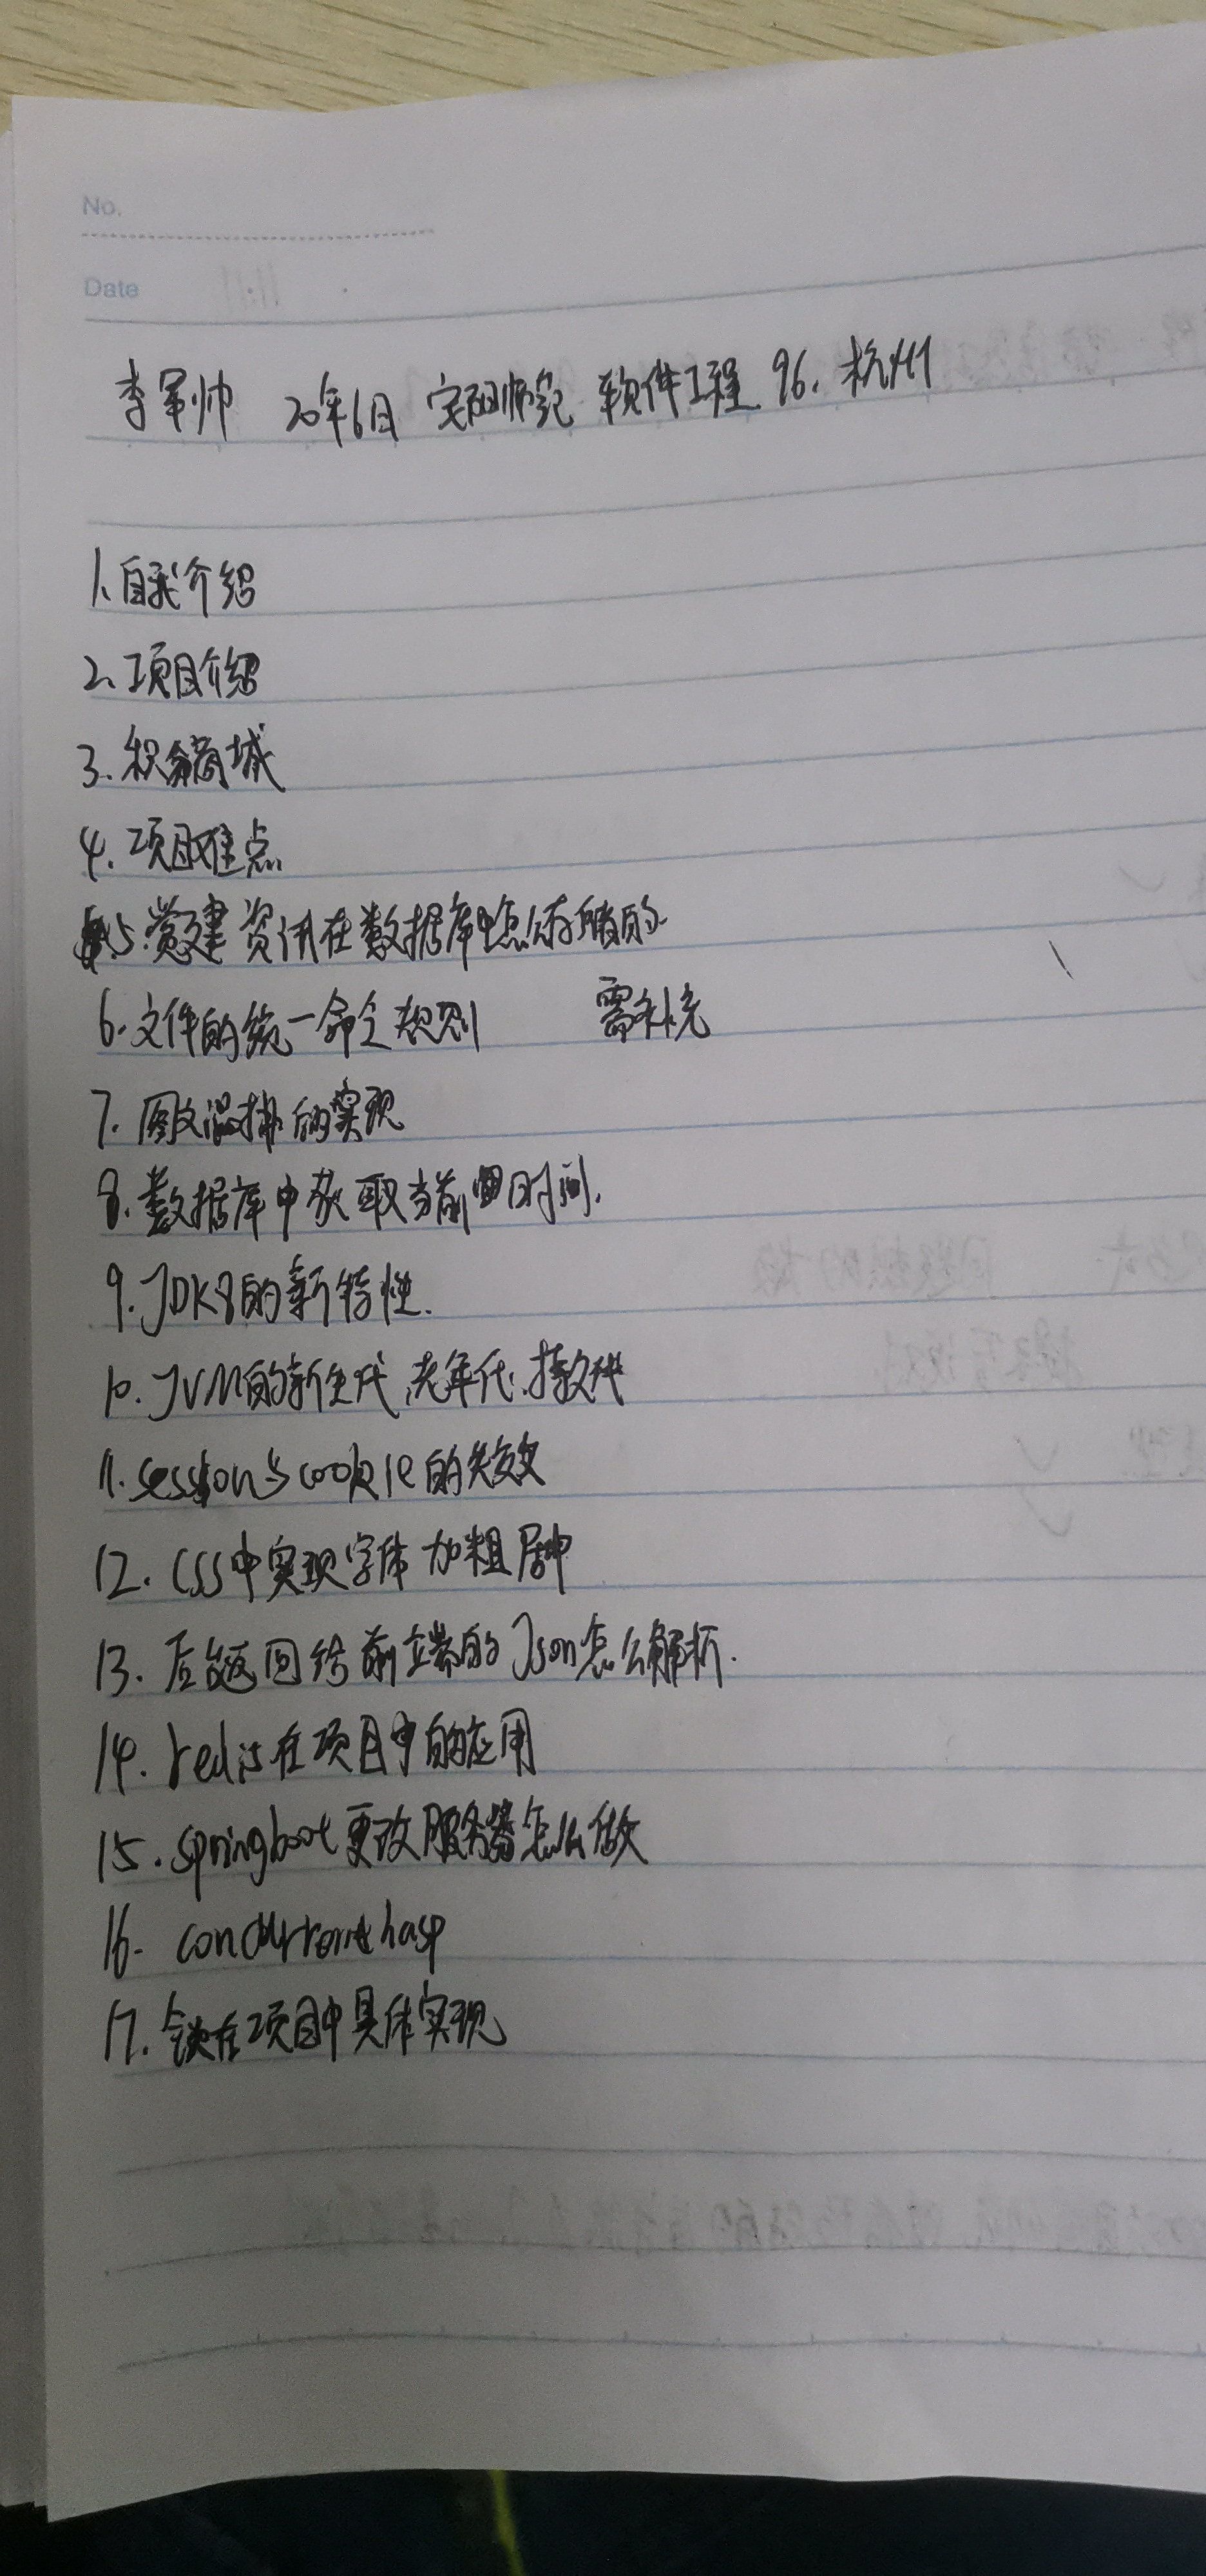 No.
Date
李军帅 20年6月 安阳师院 软件工程 96. 杭州
1、自我介绍
2、项目介绍
3. 积分商城
4. 项目难点
5.党建资讯在数据库中怎么存储的.
6.文件的统一命令规则 需补充
7. 图文混排的实现
8.数据库中获取当前日时间.
9.JDK8的新特性.
10.JVM的新生代,老年代.持久代
11.session与cookie的失效
12. CSS中实现字体加粗居中
13. 后台返回给前端的Json怎么解析.
14. redis在项目中的应用
15.springboot更改服务器怎么做
16. concurrenthasp
17. 锁在项目中具体实现